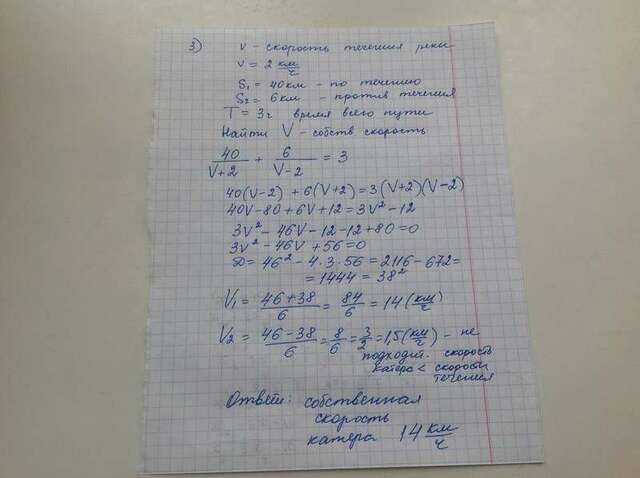 3) v - скорость течения реки
v = 2 км/ч
S₁ = 40км - по течению
S₂ = 6км - против течения
T = 3ч время всего пути
Найти V - собств скорость
40/(V+2) + 6/(V-2) = 3
40(V-2) + 6(V+2) = 3(V+2)(V-2)
40V-80+6V+12 = 3V²-12
3V²-46V-12-12+80=0
3V²-46V+56=0
D = 46²-4·3·56 = 2116-672=
= 1444 = 38²
V₁ = (46+38)/6 = 84/6 = 14 (км/ч)
V₂ = (46-38)/6 = 8/6 = 3/2 = 1,5 (км/ч) - не
подходит. скорость
катера < скорости
течения
Ответ: собственная
скорость
катера 14 км/ч